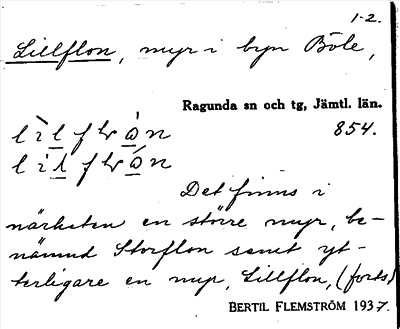 1-2.
Lillflon, myr i byn Böle,
Ragunda sn och tg, Jämtl. län.
854.
Det finns i
närheten en större myr, be-
nämnd Storflon samt yt-
terligare en myr, Lillflon, (forts)
BERTIL FLEMSTRÖM 1937.